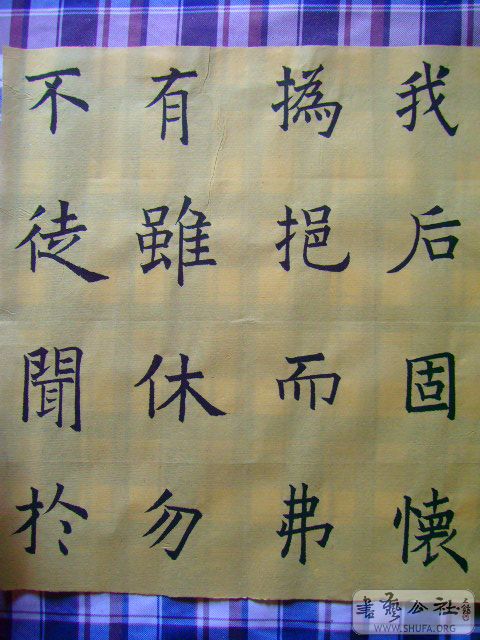 我后固懷
撝挹而弗
有雖休勿
不徒聞於
書藝公社
WWW.SHUFA.ORG